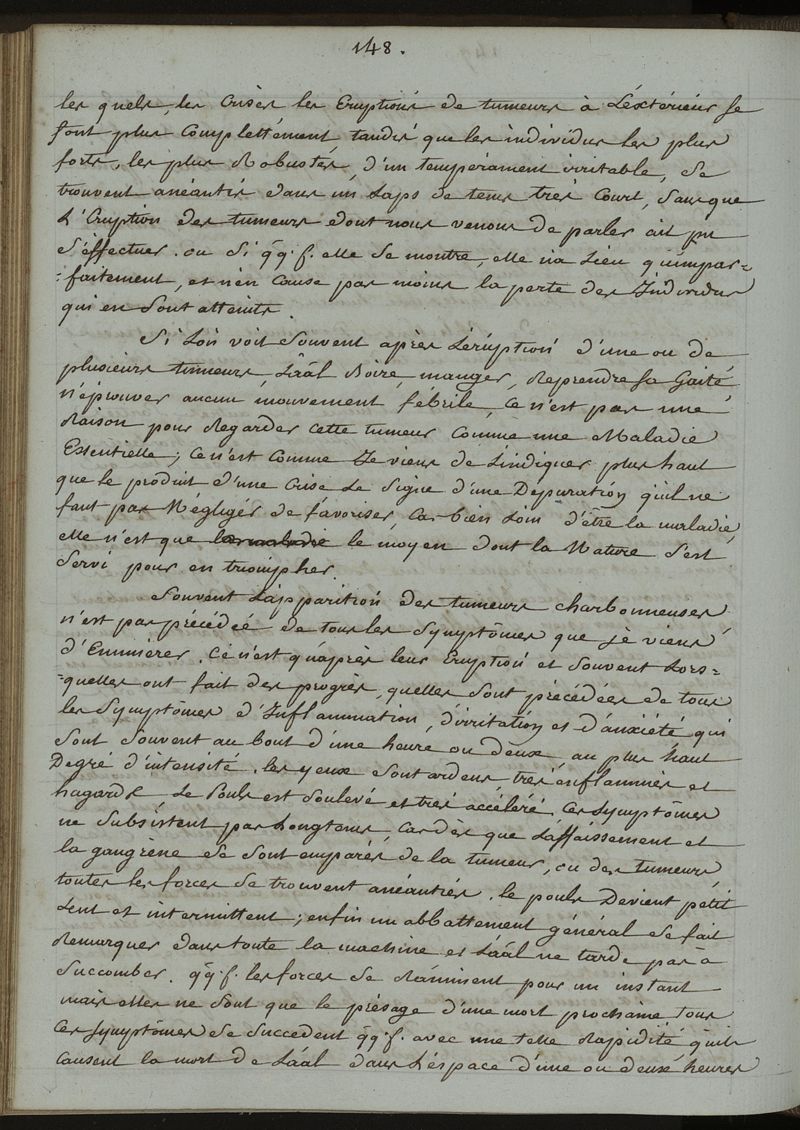 148.
les quels, les Crises les Eruptions de tumeurs à L'éxtérieur se
font plus Complettement, tandis que les individus les plus
forts, les plus Robustes, d'un temperament irritable, Se
trouvent anéantis dans un Laps de tems très Court, Sans que
L'Eruption des tumeurs dont nous venons de parler ait pu
S'éffectuer. ou Si qq. f. elle Se montre, elle n'a Lieu qu'impar=
:faitement, et n'en Cause pas moins la perte des Individus
qui en Sont atteints.
Si L'on voit Souvent après L'éruption d'une ou de
plusieurs tumeurs L'aâl Boire, manger, Reprendre Sa Gaité
n'éprouver aucun mouvement fébrile, Ce n'est pas une
Raison pour Regarder cette tumeur Comme une Maladie
Essentielle; Ce n'est Comme Je viens de L'indiquer plus haut
que le produit d'une Crise Le Signe d'une Depuration qu'il ne
faut pas Négliger de favoriser, Car bien Loin d'être la maladie,
elle n'est que la maladie le moyen dont la Nature S'est
Servi pour en triompher.
Souvent L'apparition des tumeurs charbonneuses
n'est pas précédée de tous les Symptômes que je viens
d'Enumérer. Ce n'est qu'après leur Eruption et Souvent Lors=
=quelles ont fait des progrès, quelles Sont précédées de tous
les Symptômes d'Inflammation, d'irritation et d'anxiété qui
Sont Souvent au bout d'une heure ou deux au plus haut
Degré d'intensité. les yeux Sont ardens très enflammés et
hagards Le Pouls est Soulevé et très accéléré, Ces Symptômes
ne Subsistent pas Longtems, Car dès que L'affaissement et
la gangrène Se Sont emparés de la tumeur, ou des tumeurs,
toutes les forces Se trouvent anéanties. le pouls Devient petit
Lent et intermittent; enfin un abbattement général Se fait
Remarquer dans toute la machine et L'aâl ne tarde pas à
Succomber. qq. f. les forces Se Raniment pour un instant
mais elles ne Sont que le présage d'une mort prochaine tous
Ces Symptômes Se Succedent qq. f. avec une telle Rapidité qu'ils
Causent la mort de L'aâl dans L'éspace d'une ou deux heures